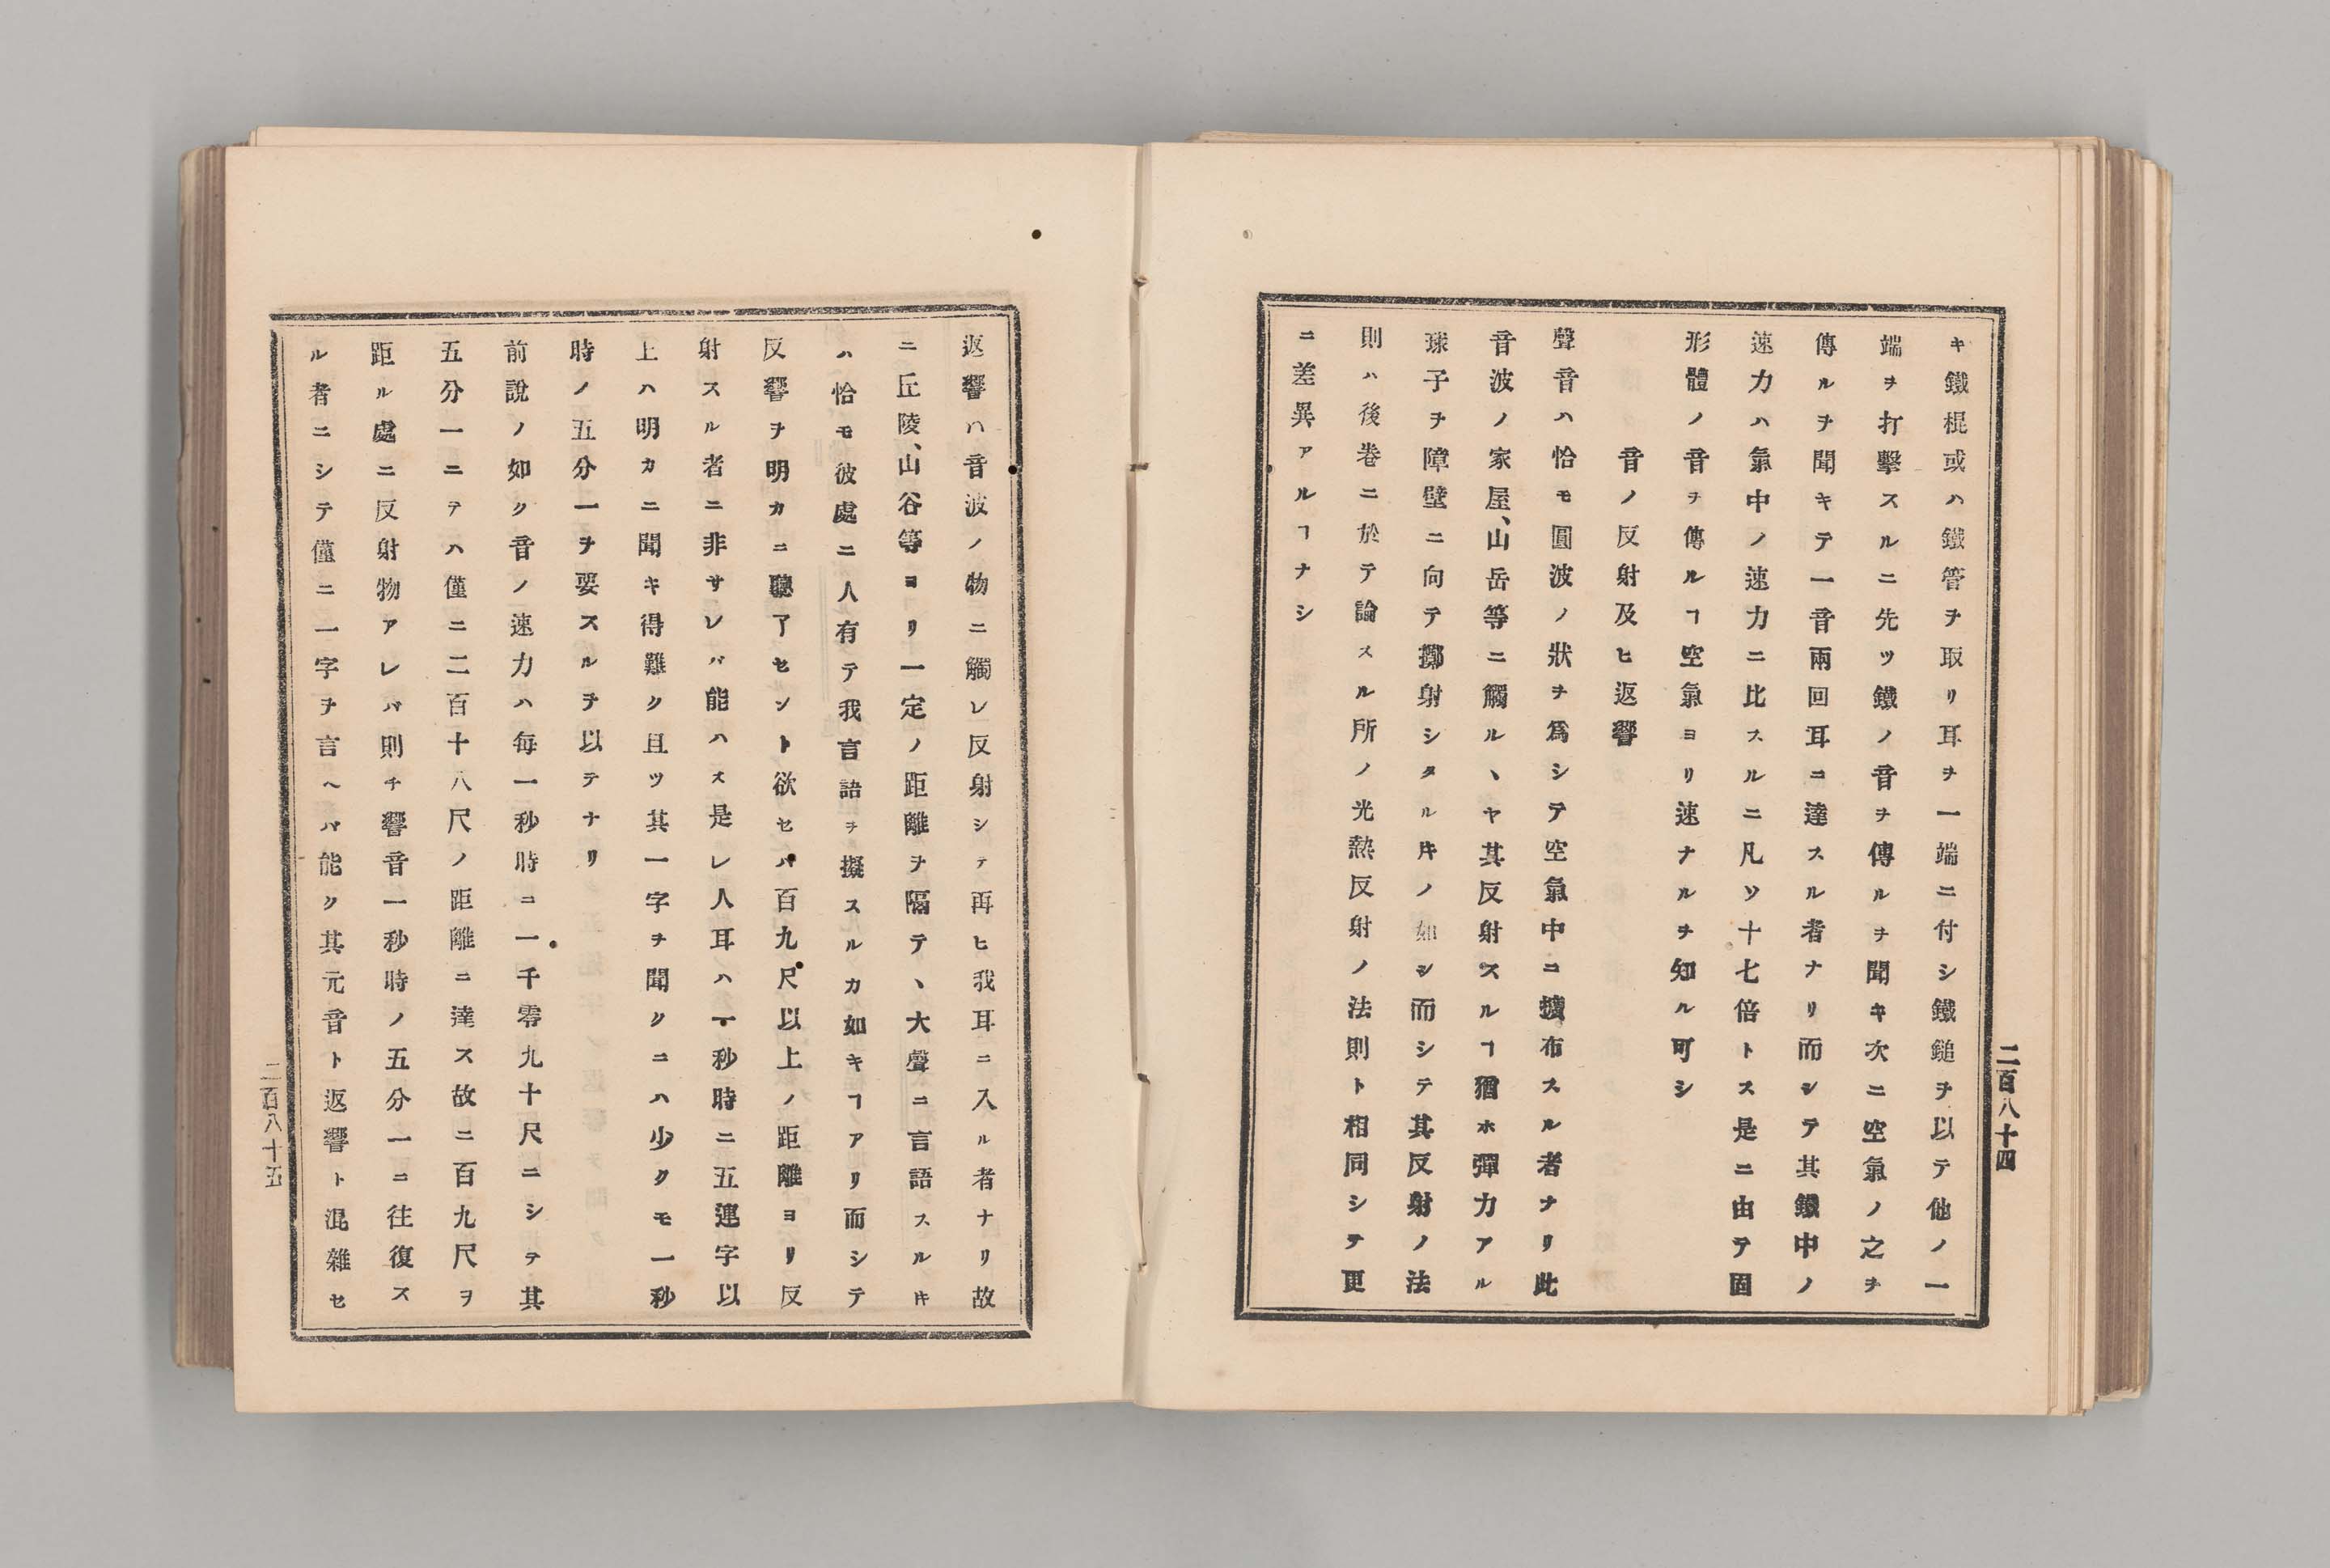 キ鐵棍或ハ鐵管ヲ取リ耳ヲ一端ニ付シ鐵鎚ヲ以テ他ノ一
端ヲ打擊スルニ先ツ鐵ノ音ヲ傳ルヲ聞キ次ニ空氣ノ之ヲ
傳ルヲ聞キテ一音兩回耳ニ達スル者ナリ而シテ其鐵中ノ
速力ハ氣中ノ速力ニ比スルニ凡ソ十七倍トス是ニ由テ固
形體ノ音ヲ傳ルヿ空氣ヨリ速ナルヲ知ル可シ
音ノ反射及ヒ返響
聲音ハ恰モ圓波ノ狀ヲ爲シテ空氣中ニ擴布スル者ナリ此
音波ノ家屋、山岳等ニ觸ルヽヤ其反射スルヿ猶ホ彈力アル
球子ヲ障壁ニ向テ擲射シタル𪜈ノ如シ而シテ其反射ノ法
則ハ後卷ニ於テ論スル所ノ光熱反射ノ法則ト相同シテ更
ニ差異アルヿナシ
二百八十四
返響ハ音波ノ物ニ觸レ反射シテ再ヒ我耳ニ入ル者ナリ故
ニ丘陵、山谷等ヨリ一定ノ距離ヲ隔テヽ大聲ニ言語スル𪜈
ハ恰モ彼處ニ人有テ我言語ヲ擬スルカ如キヿアリ而シテ
反響ヲ明カニ聽了セント欲セバ百九尺以上ノ距離ヨリ反
射スル者ニ非サレバ能ハス是レ人耳ハ一秒時ニ五連字以
上ハ明カニ聞キ得難ク且ツ其一字ヲ聞クニハ少クモ一秒
時ノ五分一ヲ要スルヲ以テナリ
前說ノ如ク音ノ速力ハ每一秒時ニ一千零九十尺ニシテ其
五分一ニテハ僅ニ二百十八尺ノ距離ニ達ス故ニ百九尺ヲ
距ル處ニ反射物アレバ則チ響音一秒時ノ五分一ニ往復ス
ル者ニシテ僅ニ一字ヲ言ヘバ能ク其元音ト返響ト混雜セ
二百八十五